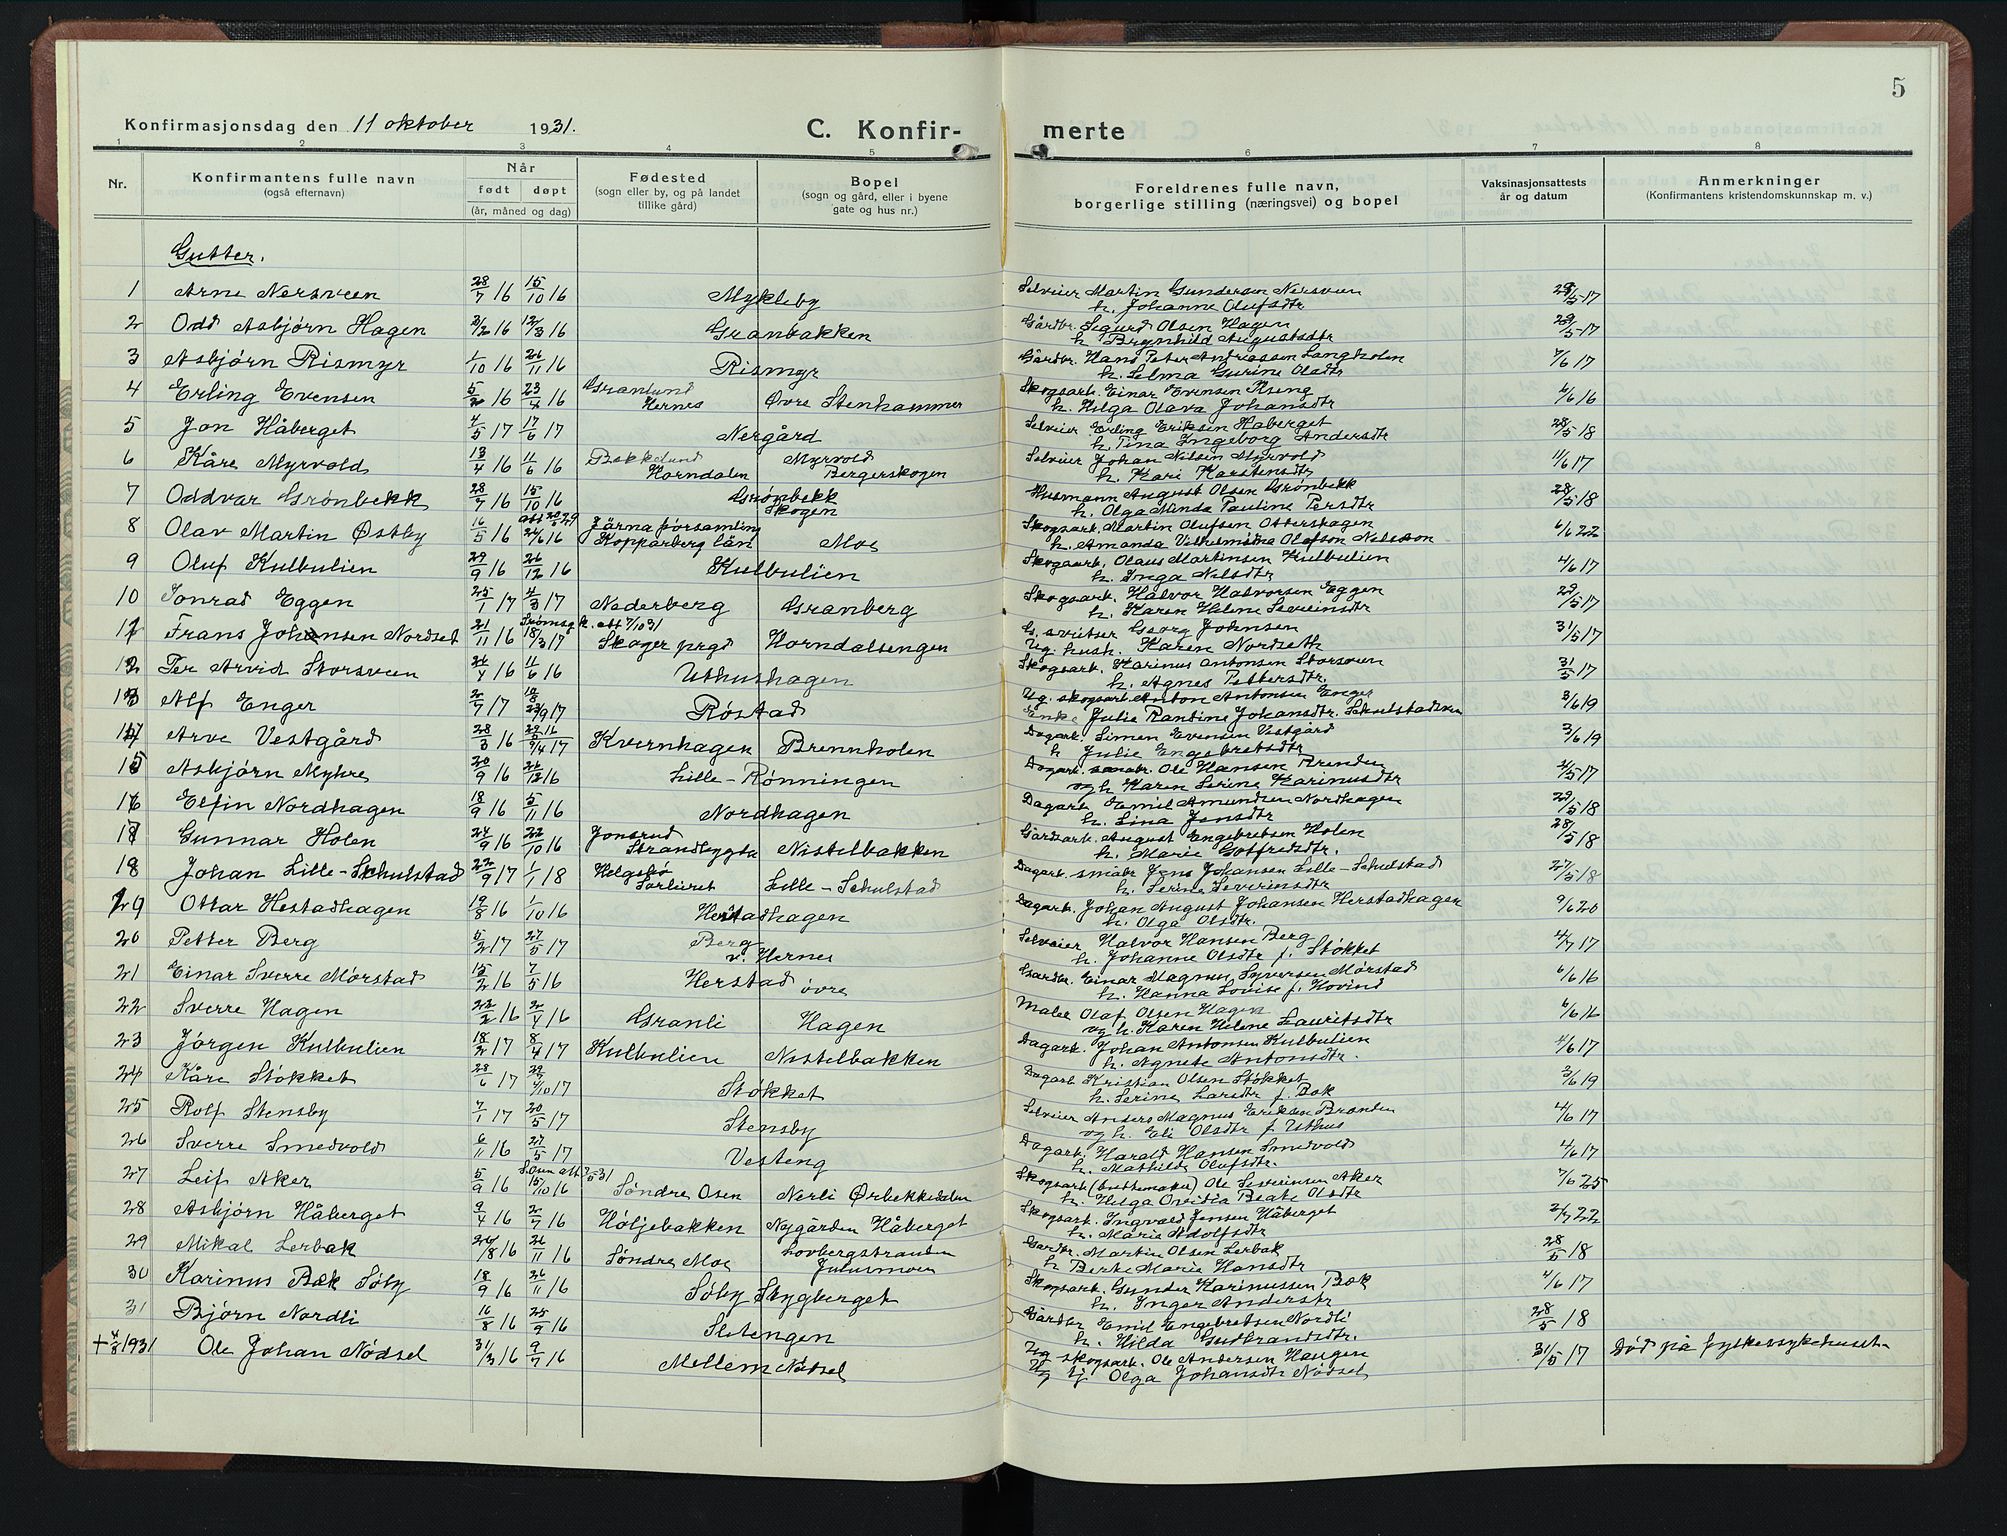 5
Konfirmasjonsdag den 11 oktober 1931.
C. Konfir- merte
1 2 3 4 5 6 7 8
Nr.
Konfirmantens fulle navn (også efternavn)
Når
født døpt
(år, måned og dag)
Fødested (sogn eller by, og på landet tillike gård)
Bopel (sogn og gård, eller i byene gate og hus nr.)
Foreldrenes fulle navn, borgerlige stilling (næringsvei) og bopel
Vaksinasjonsattests år og datum
Anmerkninger (Konfirmantens kristendomskunnskap m. v.)
Gutter.
1 Arne Nersveen 28/7 16 15/10 16 Mykleby Selveier Martin Gundersen Nersveen 29/5-17
h. Johanne Olufsdtr
2 Odd Asbjørn Hagen 3/2 16 12/3 16 Granbakken Gårdbr. Sigurd Olsen Hagen 29/5-17
h Brynhild Augustsdtr
3 Asbjørn Rismyr 1/10 16 26/11 16 Rismyr Gårdbr. Hans Peter Andreassen Langholen 7/6 17
h. Selma Gurine Olsdtr
4 Erling Evensen 5/2 16 23/4 16 Granlund Hernes Øvre Stenhammer Skogsark. Einar Evensen 6/6 16
h. Helga Olava Johansdtr
5 Jon Håberget 4/5 17 17/6 17 Nergård Selveier Erling Eriksen Haberget 28/5 18
h. Tina Ingeborg Andersdtr
6 Kåre Myrvold 13/4 16 11/6 16 Bakkelund Horndalen Myrvold Bergerskogen Selveier Johan Nilsen Myrvold 11/6 17
h. Kari Karstensdtr
7 Oddvar Grønbekk 28/7 16 15/10 16 Grønbekk Skogen Husmann August Olsen Grønbekk 28/5 18
h. Olga Minda Pauline Persdtr
8 Olav Martin Østby 16/5 16 att 20/6 29 24/6 16 Järna församling Kopparberg län Moe Skogsark. Martin Olufsen Ottershagen 6/6 22
h. Amanda Vilhelmina Olofson Nelsson
9 Oluf Kulbulien 27/9 16 26/12 16 Kulbulien Skogsark. Olaus Martinsen Kulbulien 4/6 17
h. Inga Nilsdtr
10 Konrad Eggen 25/1 17 4/3 17 Nederberg Granberg Skogsark. Halvor Halvorsen Eggen 29/5 17
h. Karen Helene Severinsdtr
11 Frans Johansen Nordset 21/11 16 18/3 17 Strømsg k. att 7/10 31 Skoger prgd Horndalsengen G. svritser Georg Johnsen 31/5 17
Ug. hush. Karen Nordseth
12 Per Arvid Storsveen 24/4 16 11/6 16 Uthushagen Skogsark. Karinus Antonsen Storsveen 31/5 17
h. Agnes Pettersdtr.
13 Alf Enger 2/7 17 23/9 17 Røstad Ug. skogsark. Anton Antonsen Enger 3/6 19
Enke Julie Randine Johansdtr. Schulstadsveen
14 Arve Vestgård 28/3 16 9/4 17 Kvernhagen Brennholen Dagark. Simen Evensen Vestgård 3/6 19
h Julie Engebretsdtr
15 Asbjørn Myhre 20/9 16 26/12 16 Lille-Rønningen Dagark. småbr. Ole Hansen Brenden 4/5 17
og h Karen Serine Karinusdtr
16 Elfin Nordhagen 18/9 16 5/11 16 Nordhagen Dagark. Emil Amundsen Nordhagen 29/5 18
h. Lina Jensdtr
17 Gunnar Holen 24/9 16 22/10 16 Jonsrud Strandbygda Nistelbakken Gårdsark. August Engebretsen Holen 28/5 18
h. Marie Gotfredsdtr.
18 Johan Lille-Schulstad 22/9 17 1/1 18 Helgebø Sørlivet Lille-Schulstad Dagark. småbr Jens Johansen Lille-Schulstad 27/5 18
h. Serine Severinsdtr
19 Ottar Hestadhagen 19/8 16 1/10 16 Herstadhagen Dagark. Johan August Johansen Herstadhagen 9/6 20
h. Olga Olsdtr.
20 Petter Berg 5/2 17 27/5 17 Berg v. Hernes Selveier Halvor Hansen Berg 4/7 17
h. Johanne Olsdtr f. Støkket
21 Einar Sverre Mørstad 15/2 16 7/5 16 Herstad øvre Gardbr. Einar Magnus Syversen Mørstad 6/6 16
h. Hanna Lovise f. Hovind
22 Sverre Hagen 22/2 16 2/4 16 Granli Hagen Maler Olaf Olsen Hagen 6/6 16
og h. Karen Helene Lauritsdtr
23 Jørgen Kulbulien 18/2 17 8/4 17 Kulbulien Nistelbakken Dagark. Johan Antonsen Kulbulien 4/6 17
h. Agnete Antonsdtr.
24 Kåre Støkket 28/6 17 4/10 17 Støkket Dagark Kristian Olsen Støkket 3/6 19
h. Serine Larsdtr f. Bæk
25 Rolf Stensby 7/1 17 20/5 17 Stensby Selveier Anders Magnus Eriksen Brænden 4/6 17
og h. Eli Olsdtr f. Uthus
26 Sverre Smedvold 6/11 16 27/5 17 Vesteng Dagark. Harald Hansen Smedvold 4/6 17
h. Mathilde Olufsdtr.
27 Leif Aker 5/9 16 S. Osen att 3/5-31 15/10 16 Søndre Osen Nerli Ørbekkedalen Skogsark (buttemaker) Ole Severinsen Aker 7/6 25
h. Helga Ovidia Beate Olsdtr
28 Asbjørn Håberget 9/4 16 2/7 16 Høljebakken Nygården Håberget Skogsark. Ingvald Jensen Håberget 3/7 22
h. Marie Adolfsdtr
29 Mikal Lerbak 24/8 16 26/11 16 Søndre Moe Lovbergstranden Julusmoen Gardbr. Martin Olsen Lerbak 28/5 18
h Berte Marie Hansdtr
30 Karinus Bæk Søby 18/9 16 26/11 16 Søby Stygberget Skogsark. Gunder Karinussen Bæk 4/6 17
h. Inger Andersdtr
31 Bjørn Nordli 16/8 16 25/9 16 Sletengen Gårdbr Emil Engebretsen Nordli 28/5 18
h. Hilda Gudbrandsdtr.
+ 4/8 1931 Ole Johan Nødsel 31/3 16 9/7 16 Mellem Nødsel Ug skogsark. Ole Andersen Haugen 31/5 17 Død på fylkessykehuset
Ug tj. Olga Johansdtr Nødsel